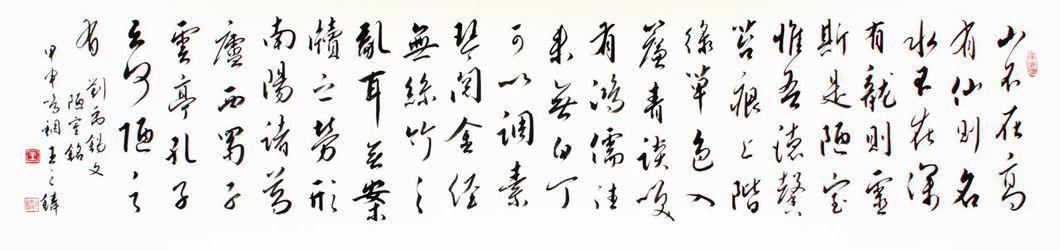 山不在高
有仙则名
水不在深
有龍则靈
斯是陋室
惟吾德馨
苔痕上階
绿草色入
簾青談笑
有鴻儒往
来无白丁
可以调素
琴阅金经
無絲竹之
亂耳无案
牘之劳形
南陽諸葛
廬西蜀子
雲亭孔子
云何陋之
有
劉禹錫文
陋室銘
甲申 王之